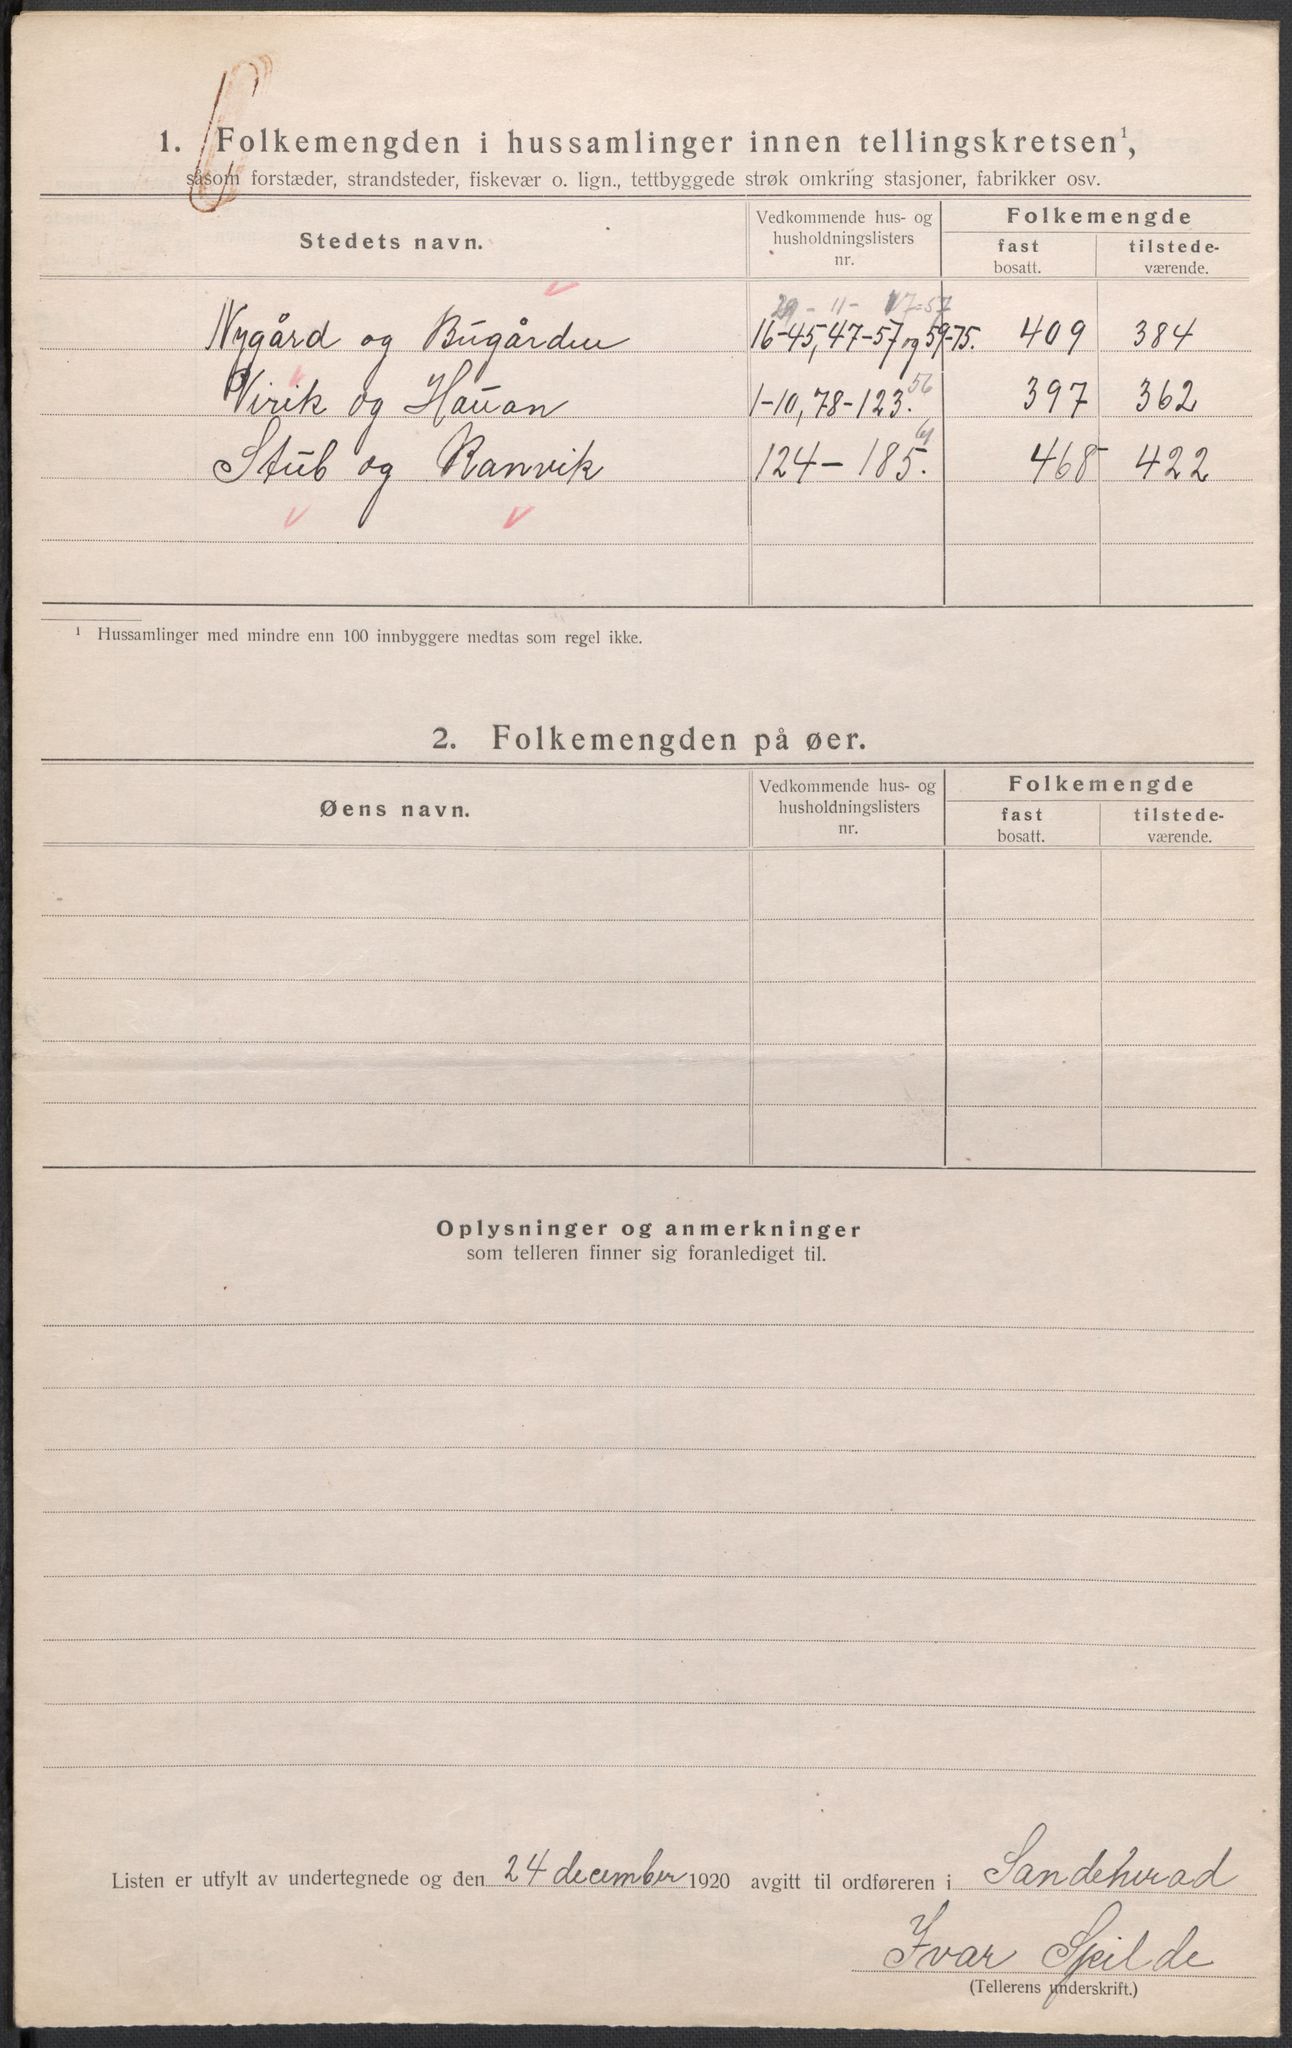 1. Folkemengden i hussamlinger innen tellingskretsen¹,
såsom forstæder, strandsteder, fiskevær o. lign., tettbyggede strøk omkring stasjoner, fabrikker osv.
Stedets navn.
Vedkommende hus- og
husholdningslisters
nr.
Folkemengde
fast
bosatt.
tilstede-
værende.
29 - 11 - 17=57
Nygård og Bugården 16-45, 47-57 og 59-75. 409 384
56
Virik og Hauan 1-10, 78-123. 397 362
Stub og Ranvik 124-185. 468 422
¹ Hussamlinger med mindre enn 100 innbyggere medtas som regel ikke.
2. Folkemengden på øer.
Øens navn.
Vedkommende hus- og
husholdningslisters
nr.
Folkemengde
fast
bosatt.
tilstede-
værende.
Oplysninger og anmerkninger
som telleren finner sig foranlediget til.
Listen er utfylt av undertegnede og den 24 december 1920 avgitt til ordføreren i Sandeherad
Ivar Skilde
(Tellerens underskrift.)